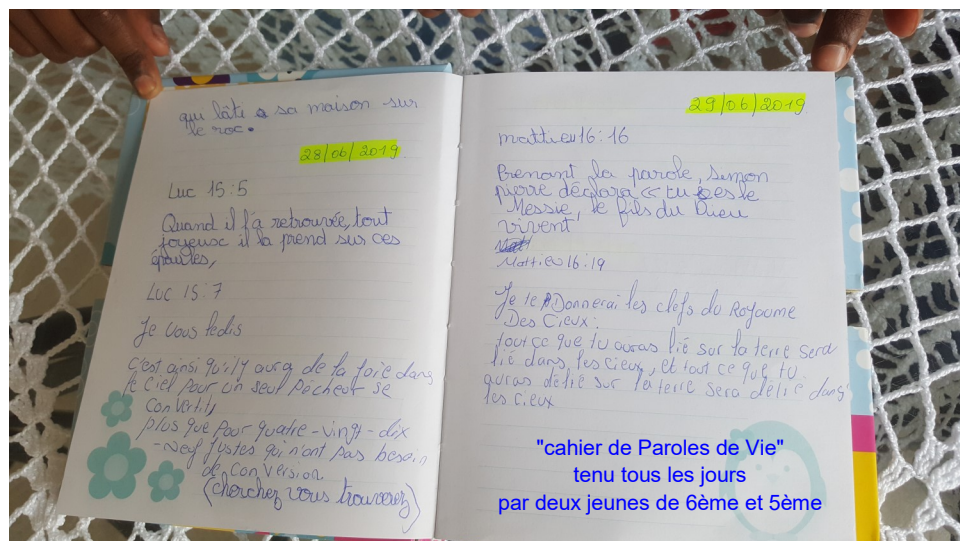 qui bâti sa maison sur
le roc.
28/06/2019.
Luc 15:5
Quand il l'a retrouvée, tout
joyeux il la prend sur ces
épaules,
Luc 15:7
Je vous ledis
c'est ainsi qu'il y aura de la joie dans
le ciel pour un seul pécheur se
convertit,
plus que pour quatre-vingt-dix
-neuf justes qui n'ont pas besoin
de conversion
(cherchez vous trouverez)
29/06/2019
mattieu 16:16
Prenant la parole, simon
pierre déclara << tu es le
Messie, le fils du Dieu
vivent
Mattieu 16:19
Je te Donnerai les clefs du Royaume
Des Cieux:
tout ce que tu auras lié sur la terre sera
lié dans les cieux, et tout ce que tu
auras délié sur la terre sera délié dans
les cieux
"cahier de Paroles de Vie"
tenu tous les jours
par deux jeunes de 6ème et 5ème